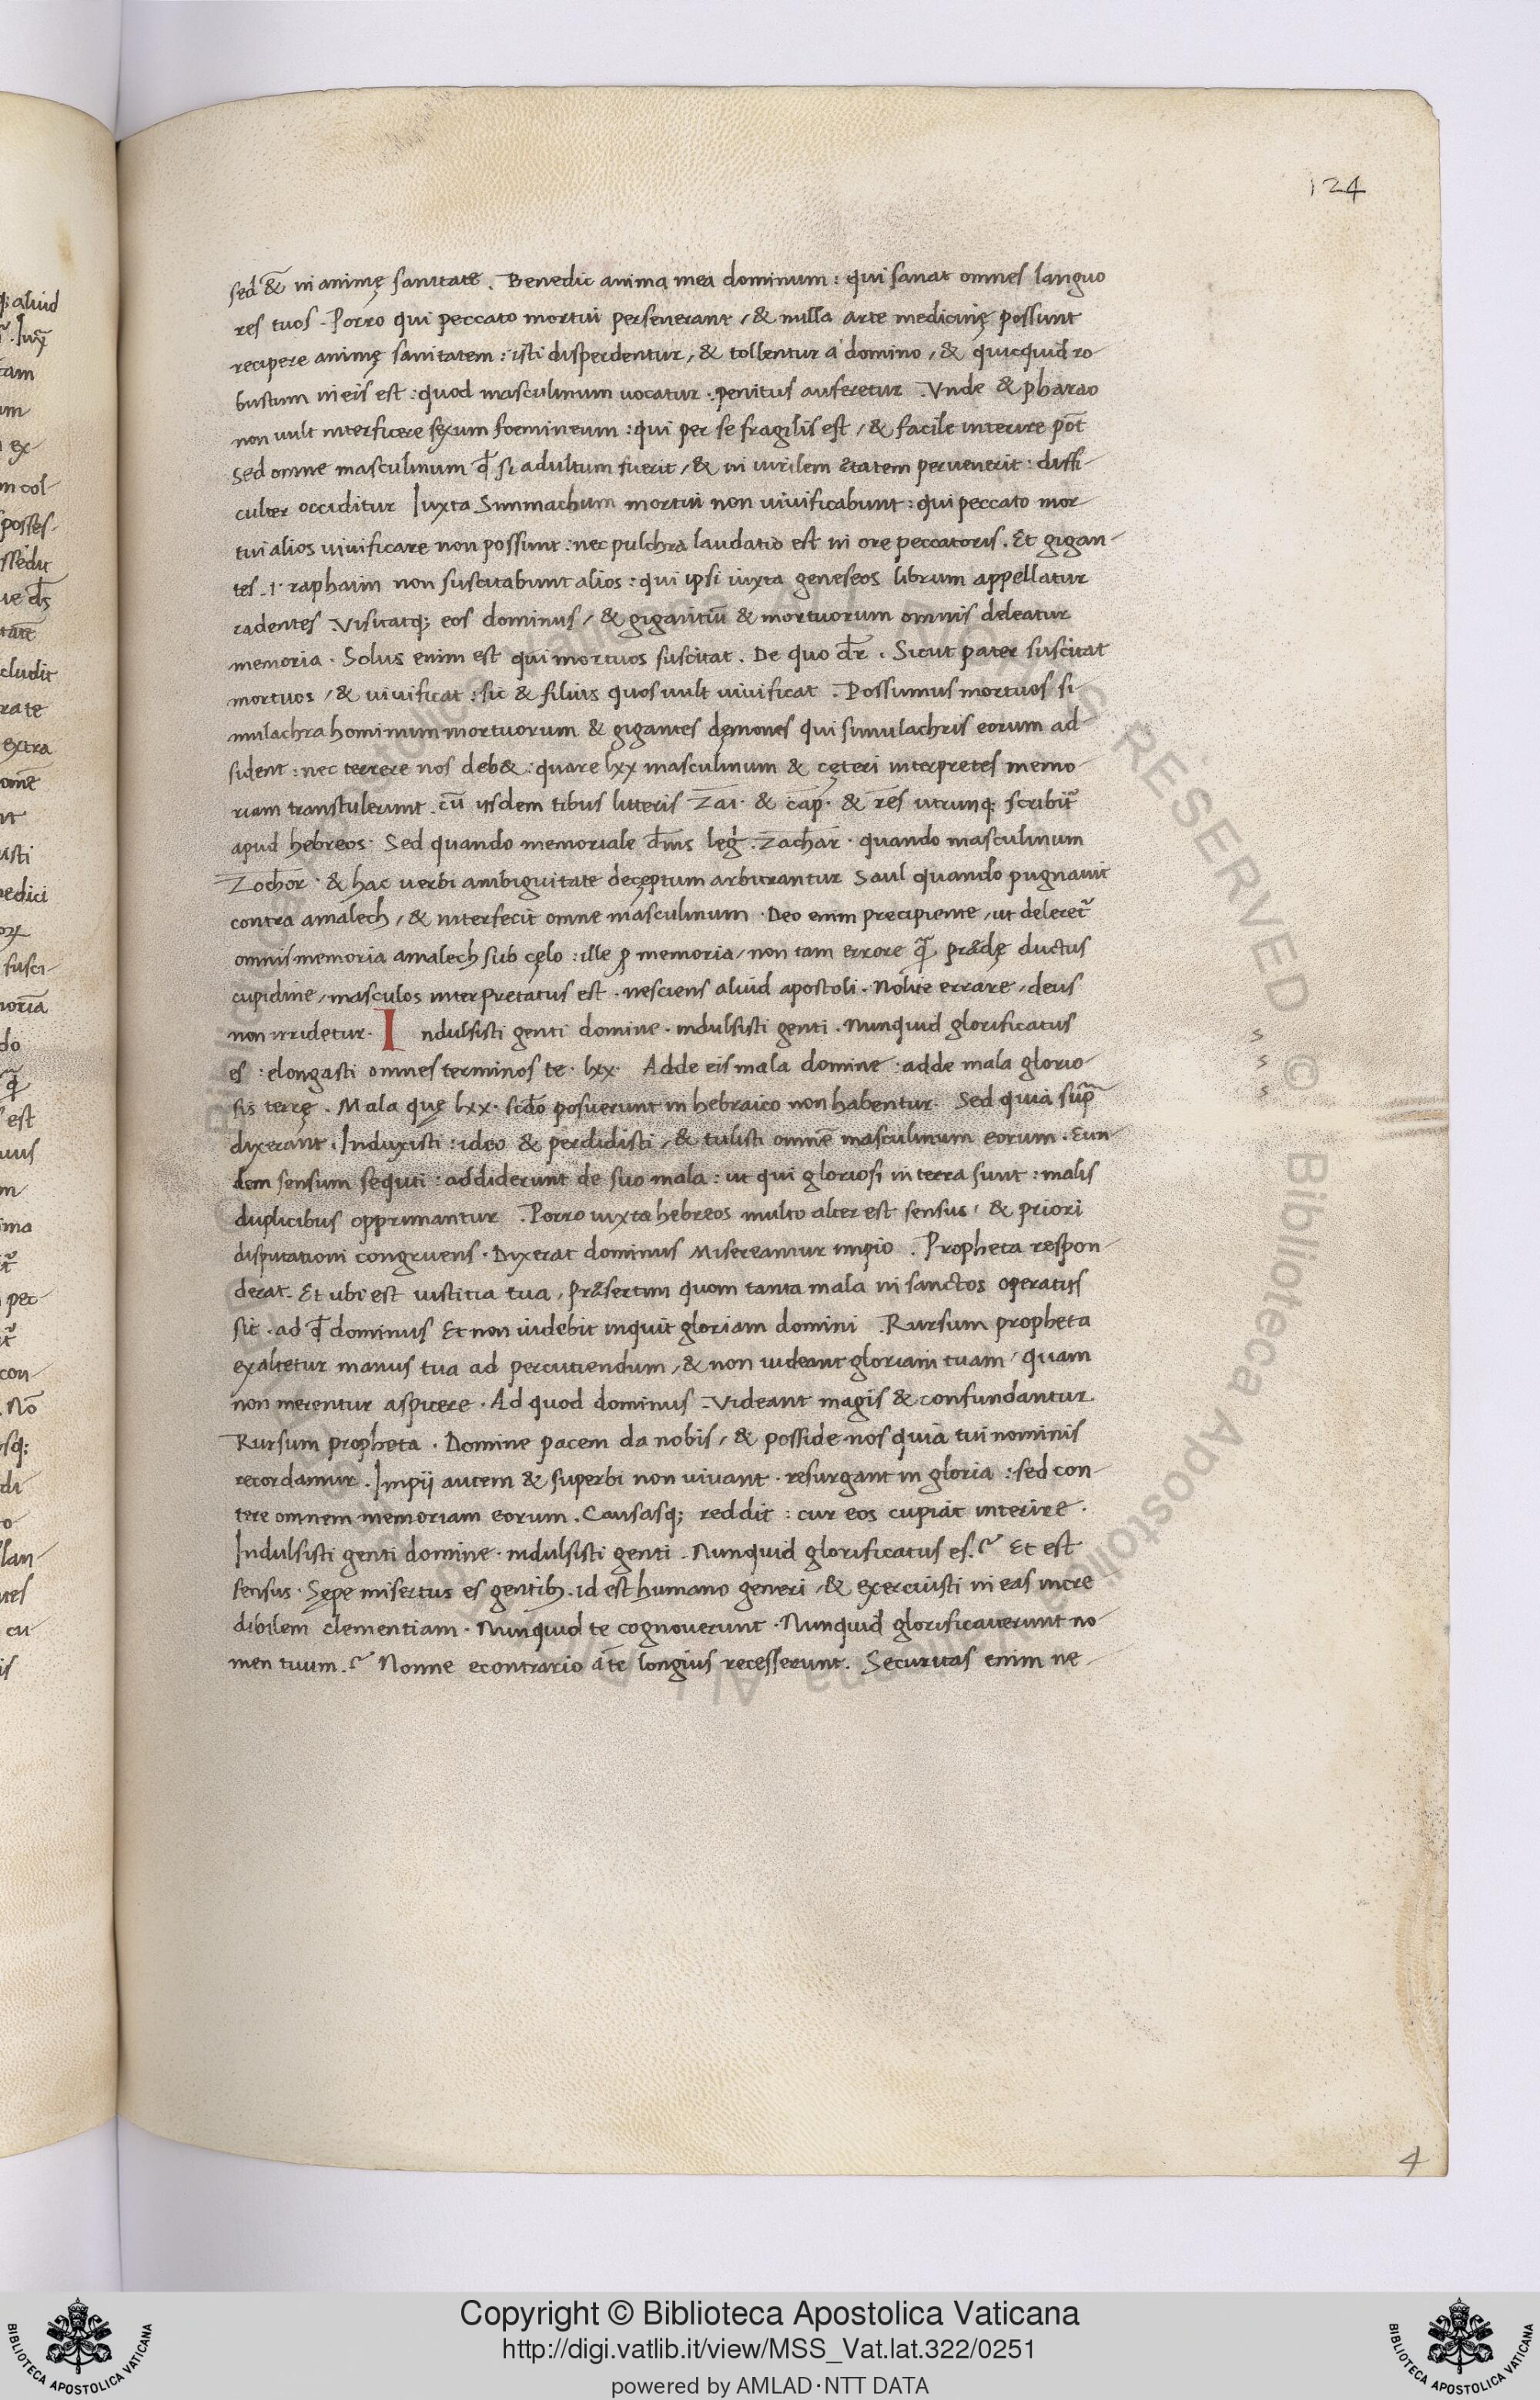 124
sed &̄ in animę sanitate. Benedic anima mea dominum: qui sanat omnes languo
res tuos. Porro qui peccato mortui perseuerant, & nulla arte medicinę possunt
recipere animę sanitatem: isti disperdentur, & tollentur a domino, & quicquid ro-
bustum in eis est: quod masculinum uocatur. penitus auferetur. Vnde & pharao
non uult interficere sexum foemineum: qui per se fragilis est, & facile interire pōt
Sed omne masculinum qd̄ si adultum fuerit, & in uirilem ętatem peruenerit: diffi-
culter occiditur Iuxta Simmachum mortui non uiuificabunt: qui peccato mor-
tui alios uiuificare non possunt: nec pulchra laudatio est in ore peccatoris. Et gigan-
tes .i. raphaim non suscitabunt alios: qui ipsi iuxta geneseos librum appellatur
cadentes. Visitatq; eos dominus, & gigantiū & mortuorum omnis deleatur
memoria. Solus enim est qui mortuos suscitat. De quo dr̄. Sicut pater suscitat
mortuos, & uiuificat: sic & filius quos uult uiuificat. Possumus mortuos si-
mulachra hominum mortuorum & gigantes dęmones qui simulachris eorum ad-
sident: nec terrere nos deb&: quare lxx masculinum & cęteri interpretes memo-
riam transtulerunt. cū iisdem tibus litteris Zai. & cap. & res utrunq; scribit᷑
apud hebreos. Sed quando memoriale dm̄s leḡ. Zachar. quando masculinum
Zochor. & hac uerbi ambiguitate deçeptum arbitrantur Saul quando pugnauit
contra amalech, & interfecit omne masculinum. Deo enim precipiente, ut deleret᷑
omnis memoria amalech sub cęlo: ille ꝓ memoria, non tam errore q̄ prędę ductus
cupidine, masculos interpretatus est. nesciens aliud apostoli. Nolite errare, deus
non irridetur. Indulsisti genti domine. indulsisti genti. Nunquid glorificatus
es: elongasti omnes terminos te. lxx. Adde eis mala domine: adde mala glorio-
sis terrę. Mala quę lxx. scd̄o posuerunt in hebraico non habentur. Sed quia supᷓ
dixerant. Induxisti: ideo & perdidisti, & tulisti omnē masculinum eorum. Eun-
dem sensum sequti: addiderunt de suo mala: ut qui gloriosi in terra sunt: malis
duplicibus opprimantur. Porro iuxta hebreos multo alter est sensus, & priori
disputationi congruens. Dixerat dominus Misereamur impio. Propheta respon-
derat. Et ubi est iusticia tua, pręsertim quom tanta mala in sanctos operatus
sit. ad qd̄ dominus Et non uidebit inquit gloriam domini. Rursum propheta
exaltetur manus tua ad percutiendum, & non uideant gloriam tuam, quam
non merentur aspicere. Ad quod dominus. Videant magis & confundantur
Rursum propheta. Domine pacem da nobis, & posside nos quia tui nominis
recordamur. Impij autem & superbi non uiuant. resurgant in gloria: sed con-
tere omnem memoriam eorum. Causasq; reddit: cur eos cupiat interire.
Indulsisti genti domine. indulsisti genti. Nunquid glorificatus es? Et est
sensus. Sępe misertus es gentibꝫ. id est humano generi, & exercuisti in eas incre
dibilem clementiam. Nunquid te cognouerunt. Nunquid glorificauerunt no-
men tuum? Nonne econtrario a te longius recesserunt. Securitas enim ne-
s
s
s
4
Copyright © Biblioteca Apostolica Vaticana
http://digi.vatlib.it/view/MSS_Vat.lat.322/0251
powered by AMLAD·NTT DATA
BIBLIOTECA APOSTOLICA VATICANA
BIBLIOTECA APOSTOLICA VATICANA